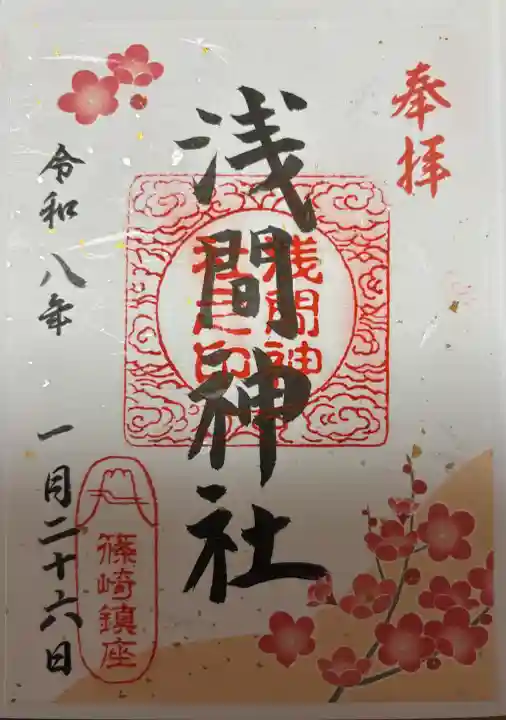 奉拝
浅間神社
浅間神
社之印
令和八年 一月二十六日
篠崎鎮座